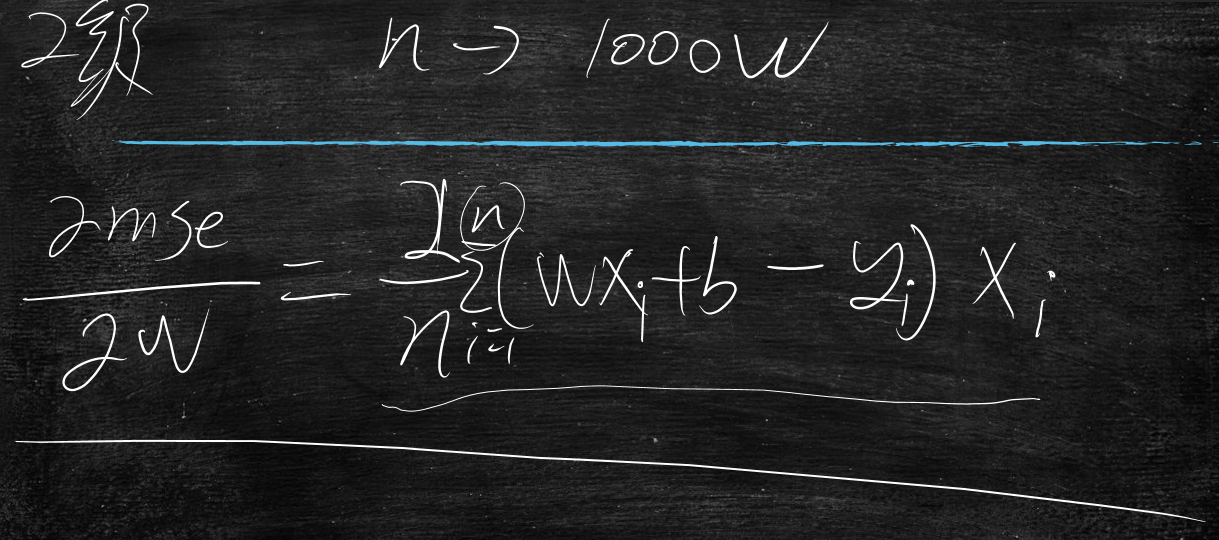 2级 n → 1000W
∂mse/∂w = 2/n Σ_{i=1}^{n} (wx_i + b − y_i) x_i